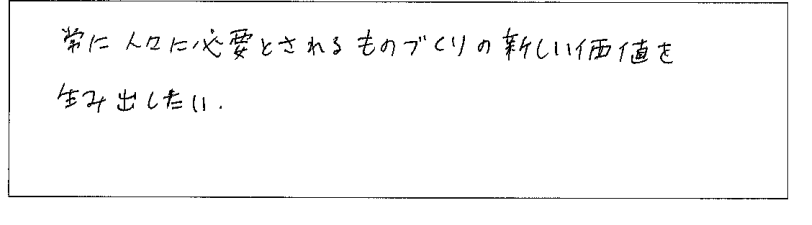 常に人々に必要とされるものづくりの新しい価値を
生み出したい.